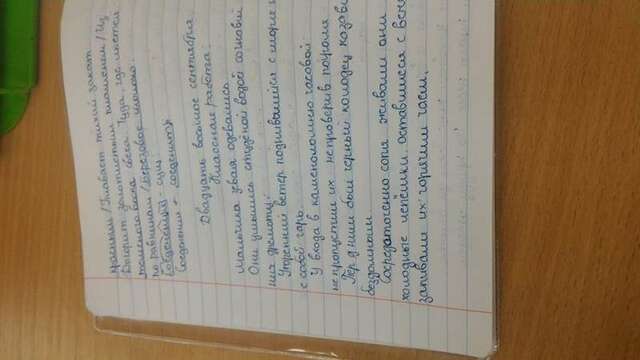 красным / Плавает тихий закат
Догорит золотистым пламенем / Из
телесного воска свеча. Туда, где льется
по равнинам / Березовое молоко.
Соединений - сущ.
Соединения ← соединить
Двадцать восьмое сентября
Классная работа.
Мальчики зевая одевались.
Они умылись студёной водой согнавшей
них дремоту.
Утренний ветер поднявшийся с моря
с собой гарь.
У входа в каменоломню часовой
не пропустил их не проверив пароля
Перед ними был черный колодец
бездонным
Сосредоточенно сопя жевали они
холодные лепёшки оставшиеся с
запивали их горячим чаем.